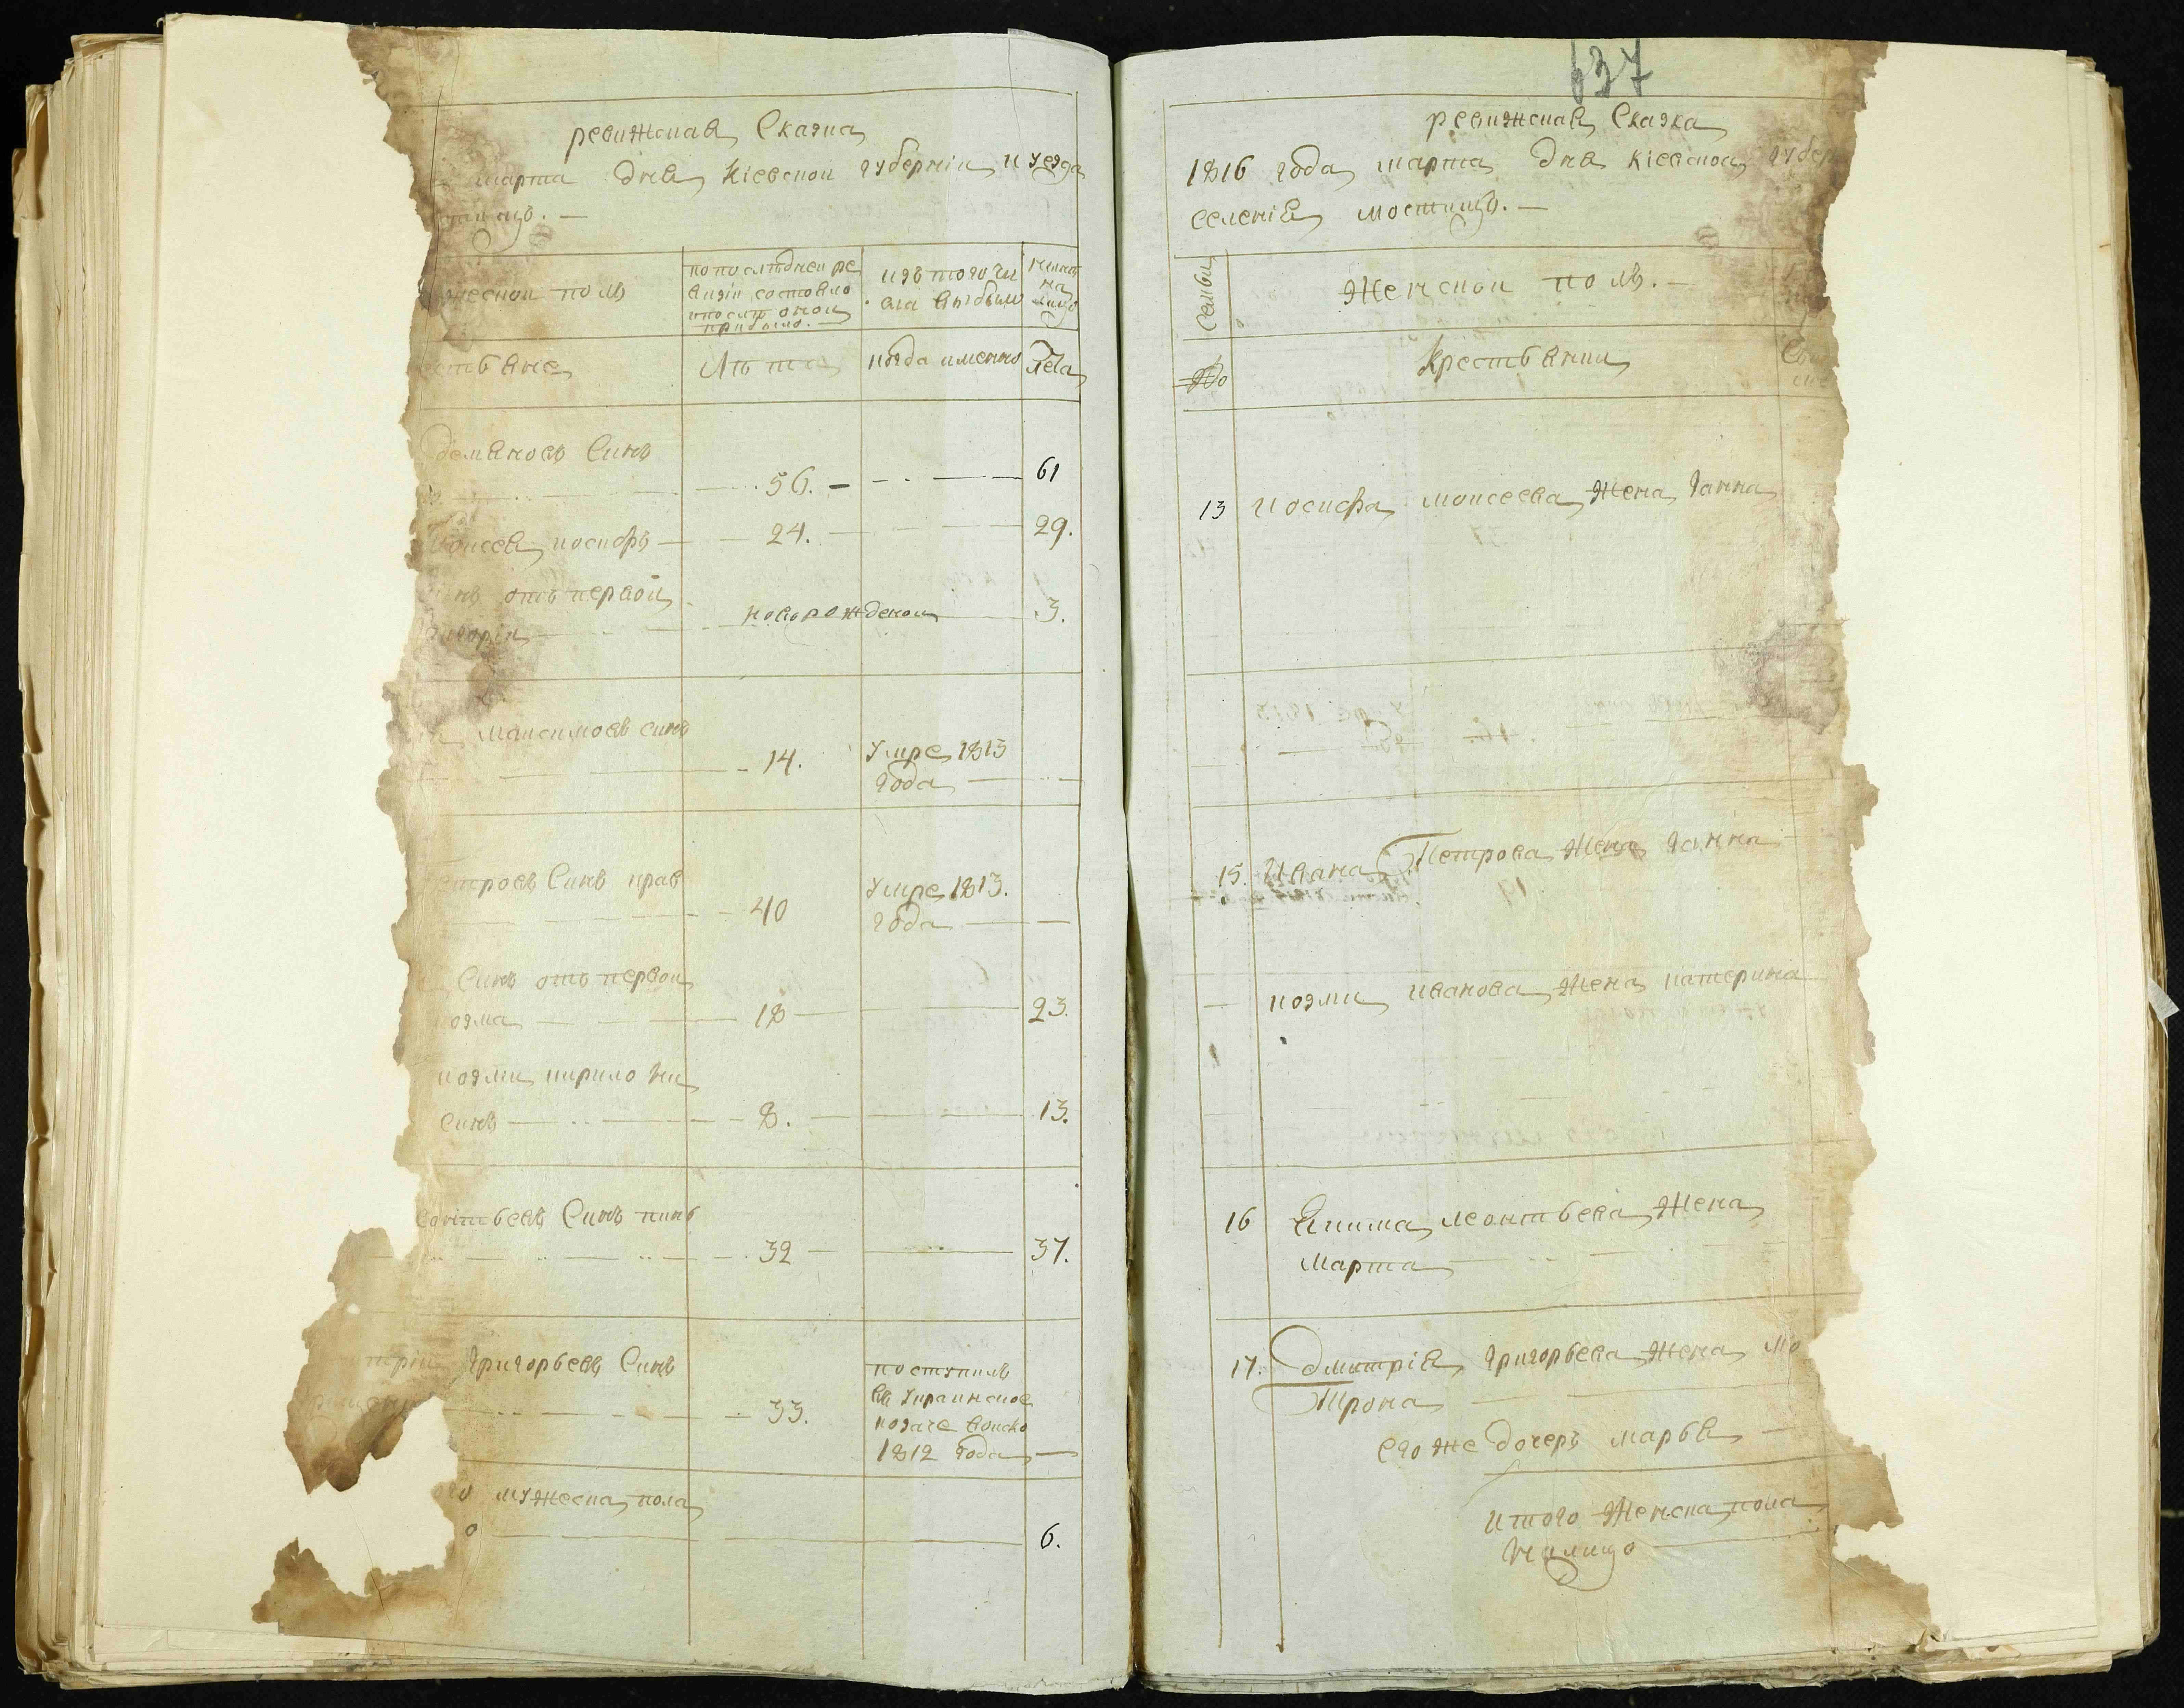 ревижская Сказка
марта дня Кіевской губерніи и уезда
ески полъ
по последней ре
визіи состояло
и после оной
прибыло.
изъ того чи
сла выбыло
ныне
на
лицо
стьяне
Лѣта
когда именно
Лета
демяновъ Синъ
56. 61
Моисея иосифъ 24. 29.
инъ отъ первой
григорiи новорожденои 3.
Максимовъ синъ
14. Умре 1813
года
етровъ Синъ
40 Умре 1813.
года
Синъ отъ первои
козма 18 23.
козми кирило
Синъ 8. 13.
еонтьевъ Синъ
32 37.
митріи Григорьевъ Синъ
33. поступилъ
въ Украинское
козаче воиско
1812 года
ого мужеска пола
о 6.
637
ревижская Сказка
1816 года марта дня Кіевской губер
селенія мостищъ.
Семьи
Женской полъ.
№
Крестьянки
13 иосифа моисеева Жена Ганна
15. Ивана Петрова Жена Ганна
козми иванова Жена катерина
16 Якима леонтьева Жена
Марта
17. Дмитрія Григорьева Жена Мо
трона
его же дочерь марья
итого Женска пола
налицо